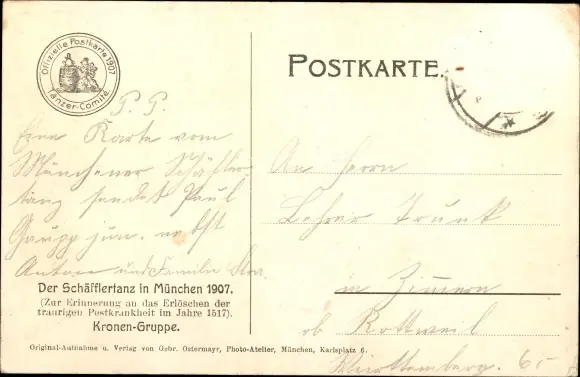 Offizielle Postkarte 1907
Tänzer-Comité
POSTKARTE.
P. P.
Eine Karte vom
Münchener Schäffler-
tanz sendet Paul
Gaupp jun. nebst
und Familie
An Herrn
Lehrer Trunk
in Zimmern
ob Rottweil
Württemberg. 65
Der Schäfflertanz in München 1907.
(Zur Erinnerung an das Erlöschen der
traurigen Pestkrankheit im Jahre 1517).
Kronen-Gruppe.
Original-Aufnahme u. Verlag von Gebr. Ostermayr, Photo-Atelier, München, Karlsplatz 6.